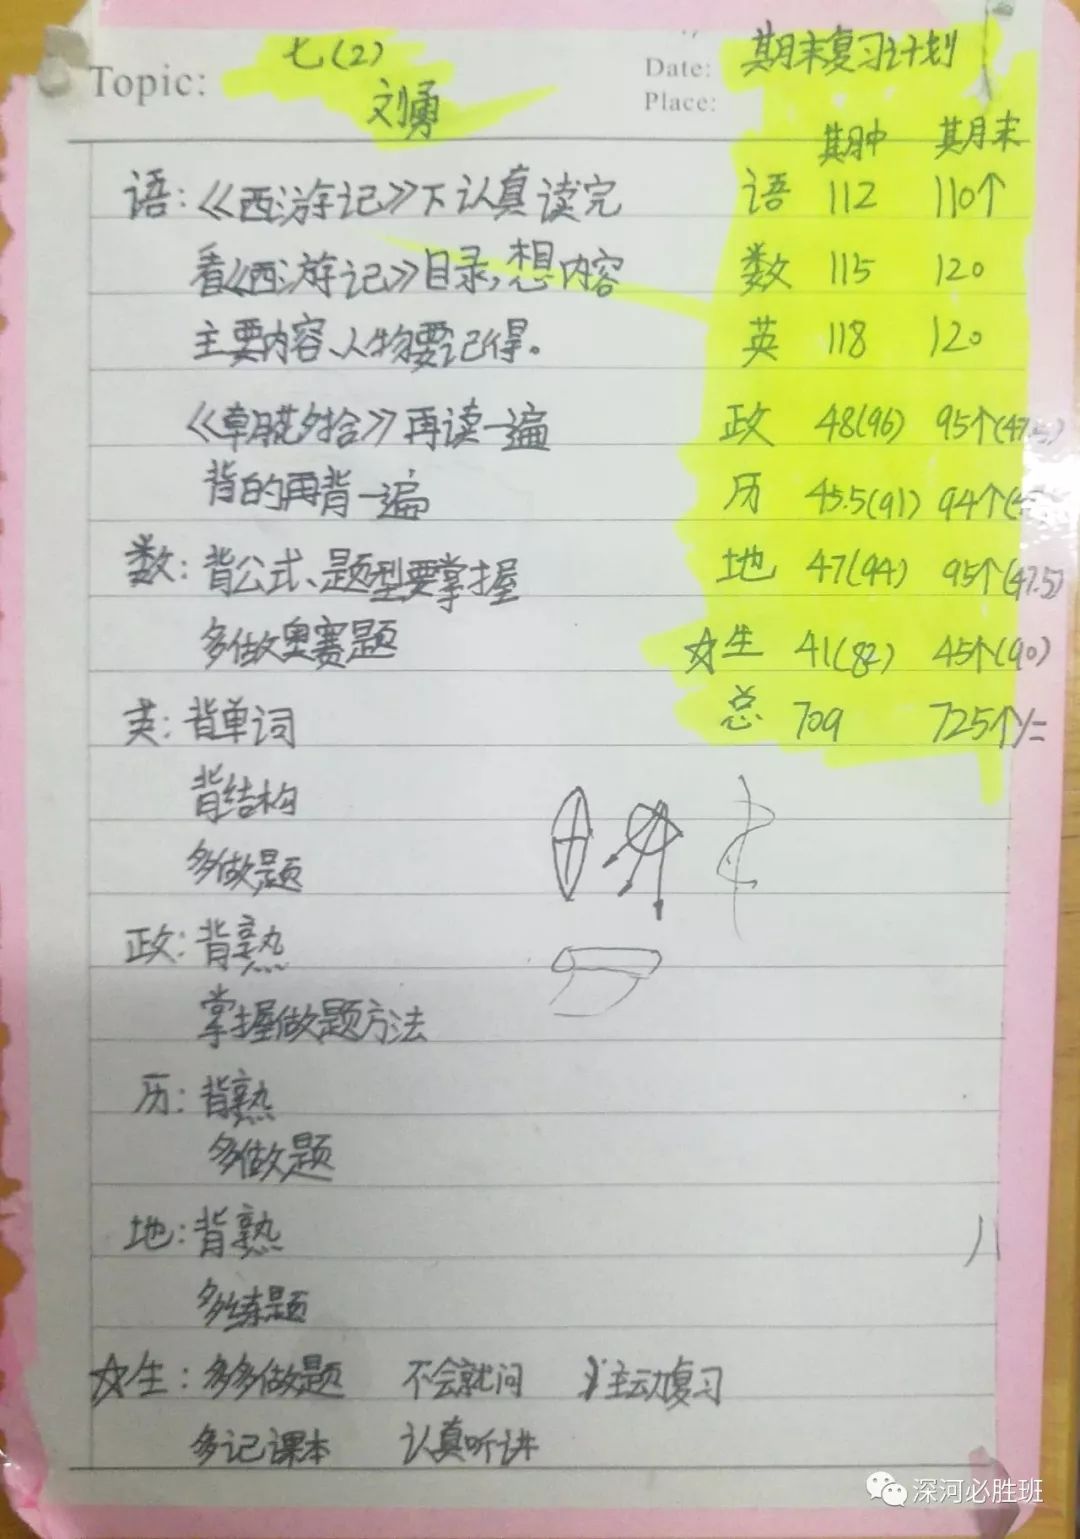 Topic: 七(2)
刘勇
Date: 期末复习计划
Place:
期中 期末
语：《西游记》下认真读完 语 112 110↑
看《西游记》目录，想内容 数 115 120
主要内容、人物要记得。 英 118 120
《朝花夕拾》再读一遍 政 48(96) 95↑(47.5)
背的再背一遍 历 45.5(91) 94↑
数：背公式、题型要掌握 地 47(94) 95↑(47.5)
多做奥赛题 ☆生 41(82) 45↑(90)
英：背单词 总 709 725↑
背结构
多做题
政：背熟
掌握做题方法
历：背熟
多做题
地：背熟
多练题
☆生：多多做题 不会就问 主动复习
多记课本 认真听讲
深河必胜班